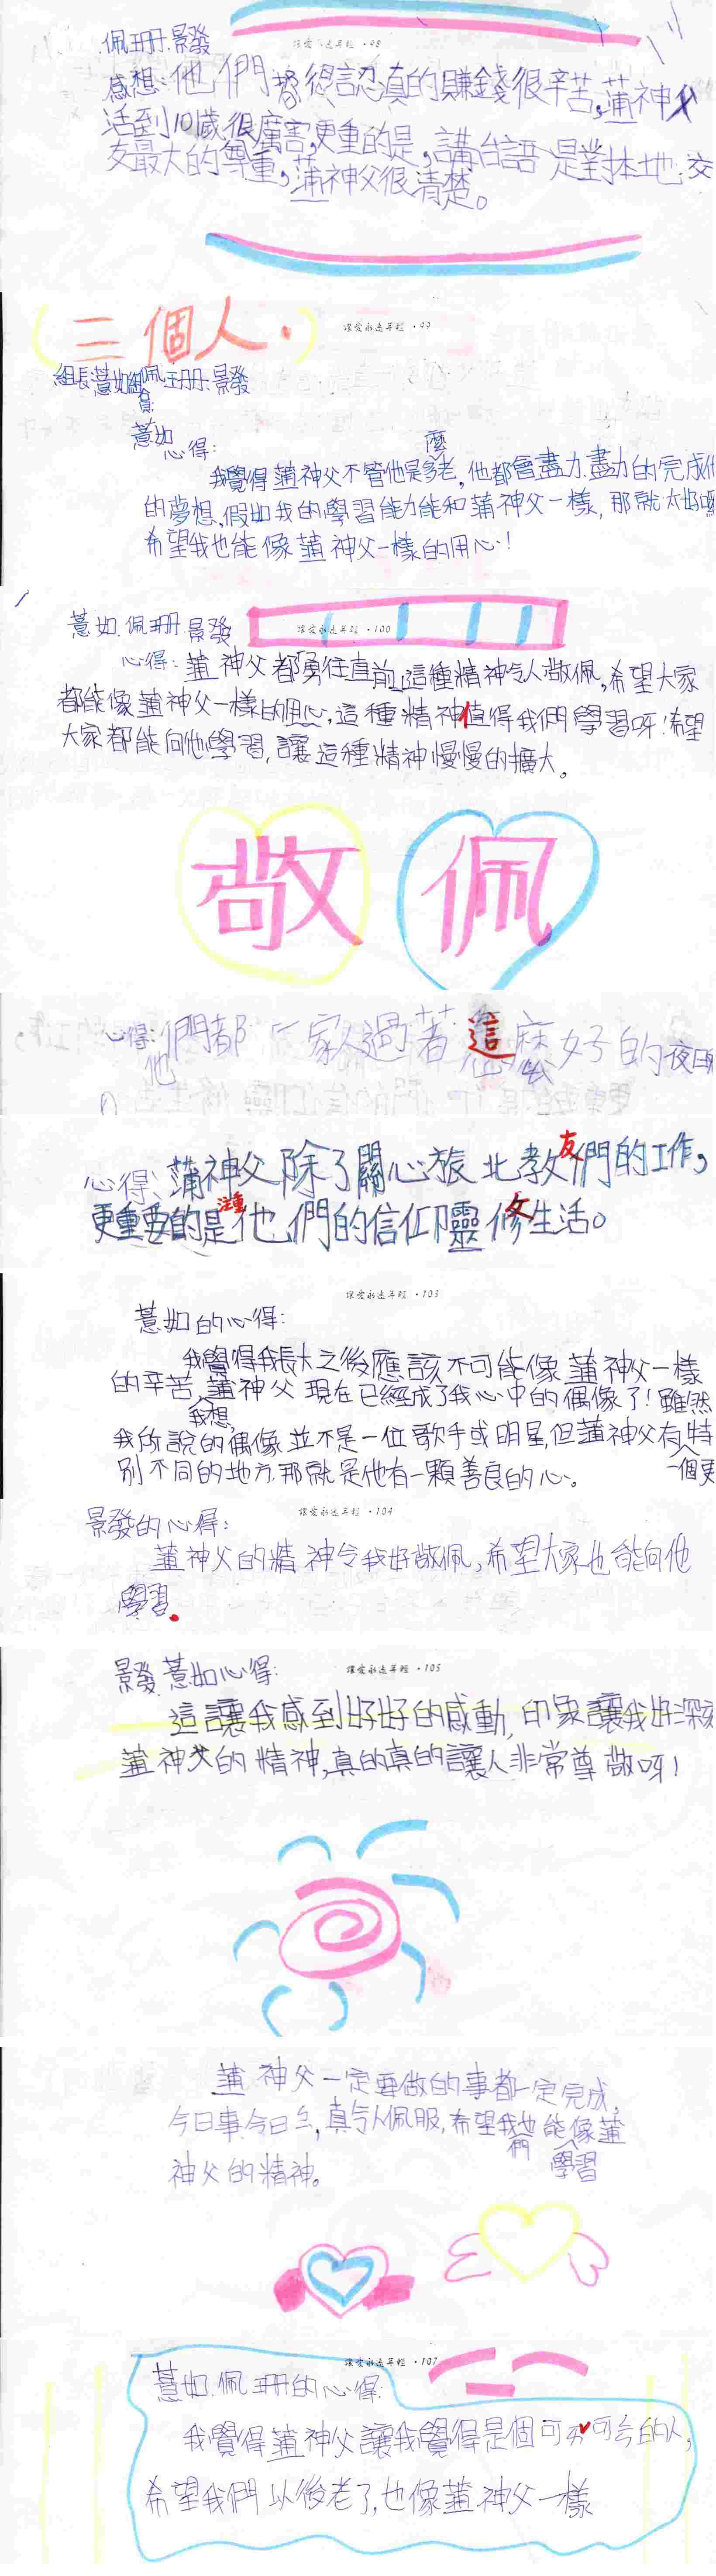 佩珊.景發
讓愛永遠年輕 · 98
感想:他們都很認真的賺錢很辛苦,蒲神父
活到10歲很厲害,更重的是,講台語是對本地交
友最大的尊重,蒲神父很清楚。
(三個人.)
讓愛永遠年輕 · 99
組長薏如組員佩珊.景發
薏如
心得:
我覺得蒲神父不管他是多麼老,他都會盡力.盡力的完成他
的夢想,假如我的學習能力能和蒲神父一樣,那就太好啊
希望我也能像蒲神父一樣的用心!
薏如.佩珊.景發
讓愛永遠年輕 · 100
心得:蒲神父都「勇往直前」這種精神令人敬佩,希望大家
都能像蒲神父一樣的用心,這種精神值得我們學習呀!希望
大家都能向他學習,讓這種精神慢慢的擴大。
敬佩
心得:他們都 家人過著這麼好的夜
心得:蒲神父除了關心旅北教友們的工作,
更重要的是注重他們的信仰靈修生活。
讓愛永遠年輕 · 103
薏如的心得:
我覺得我長大之後應該不可能像蒲神父一樣
的辛苦,我想,蒲神父現在已經成了我心中的偶像了!雖然
我所說的偶像並不是一位歌手或明星,但蒲神父有一個更特
別不同的地方.那就是他有一顆善良的心。
景發的心得:
讓愛永遠年輕 · 104
蒲神父的精神令我好敬佩,希望大家也能向他
學習.
景發.薏如心得:
讓愛永遠年輕 · 105
這讓我感到好好的感動,印象讓我好深刻
蒲神父的精神,真的真的讓人非常尊敬呀!
蒲神父一定要做的事都一定完成,
今日事今日,真令人佩服,希望我們也能學習像蒲
神父的精神。
讓愛永遠年輕 · 107
薏如.佩珊的心得:
我覺得蒲神父讓我覺得是個可可的人,
希望我們以後老了,也像蒲神父一樣